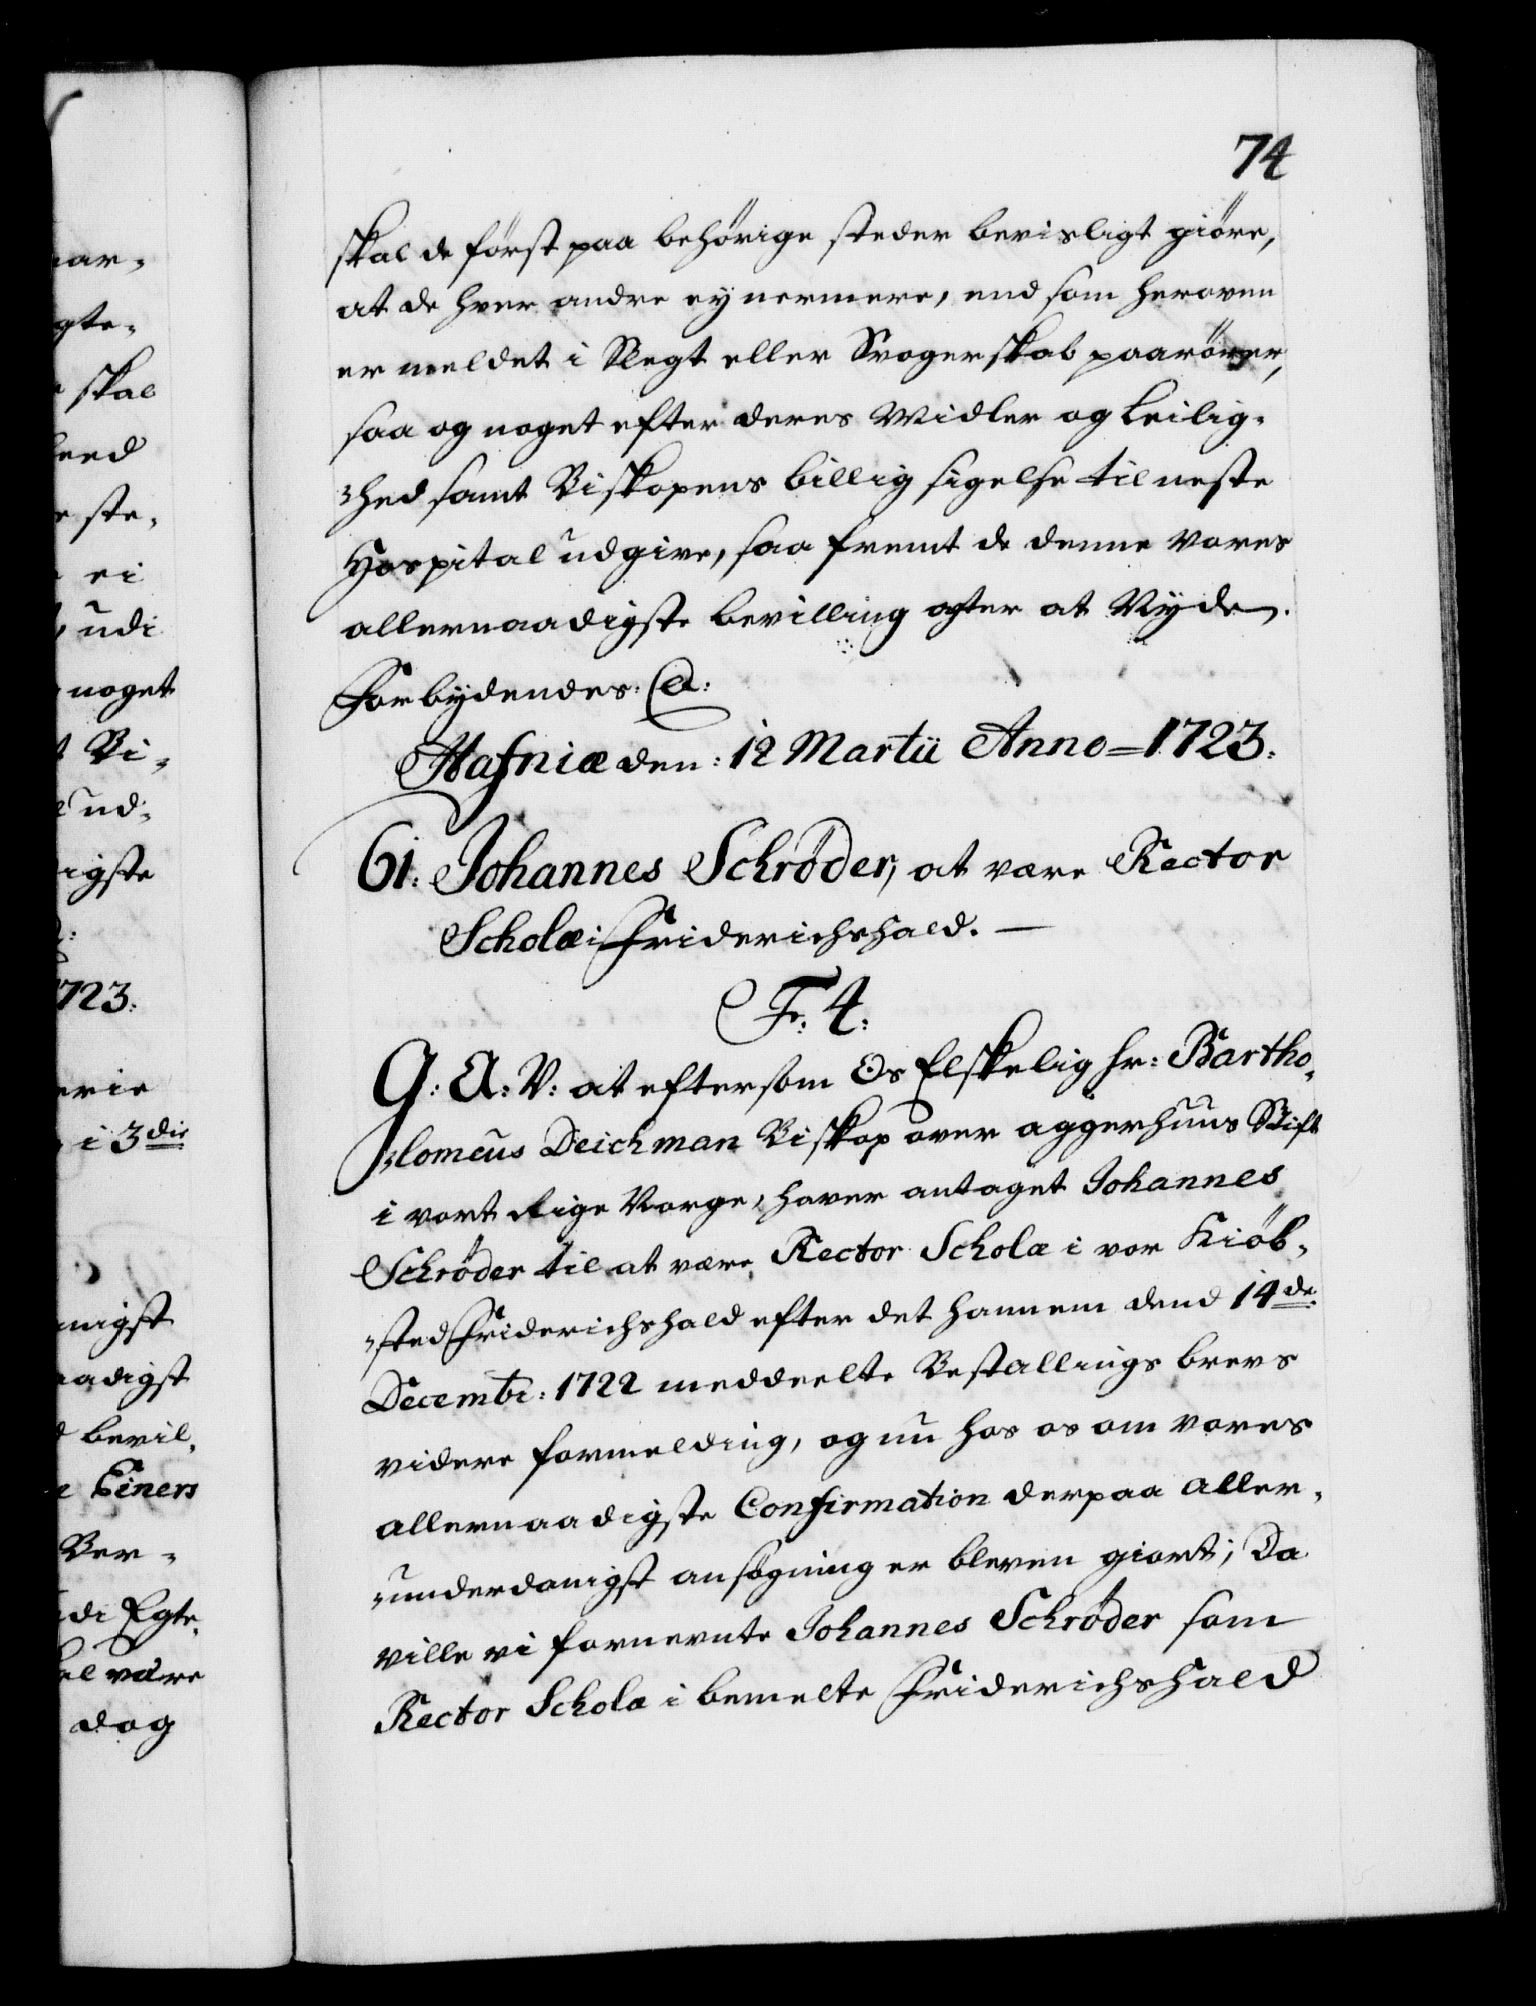 74
skal de först paa behörige steder bevisligt giöre,
at de hver andre ey nermere, end som heroven
er meldet i Slegt eller Svogerskab paarörer,
saa og noget efter deres Midler og Leilig-
-hed samt Biskopens billig sigelse til neste
Hospital udgive, saa fremt de denne vores
allernaadigste bevilling agter at Nyde.
Forbydendes: &:
Hafniæ den: 12 Martii Anno=1723:
61: Johannes Schröder, at være Rector
Scholæ i Friderichshald. —
F: 4:
G: A: V: at eftersom Os Elskelig hr: Bartho-
-lomeus Deichman Biskop over aggerhuus Stift
i vort Rige Norge, haver antaget Johannes
Schröder til at være Rector Scholæ i vor Kiöb-
-sted Friderichshald efter det hannem dend 14de
Decembr: 1722 meddeelte Bestallings brevs
videre formelding, og nu hos os om vores
allernaadigste Confirmation derpaa aller-
-underdanigst ansögning er bleven giort; Da
ville vi fornevnte Johannes Schröder som
Rector Scholæ i bemelte Friderichshald
ar-
gte-
skal
ste-
ei
udi
noget
Bi-
ud-
igste
1723:
i 3die
nigst
aadigst
bevil-
Einers
Ber-
di Egte-
være
dog